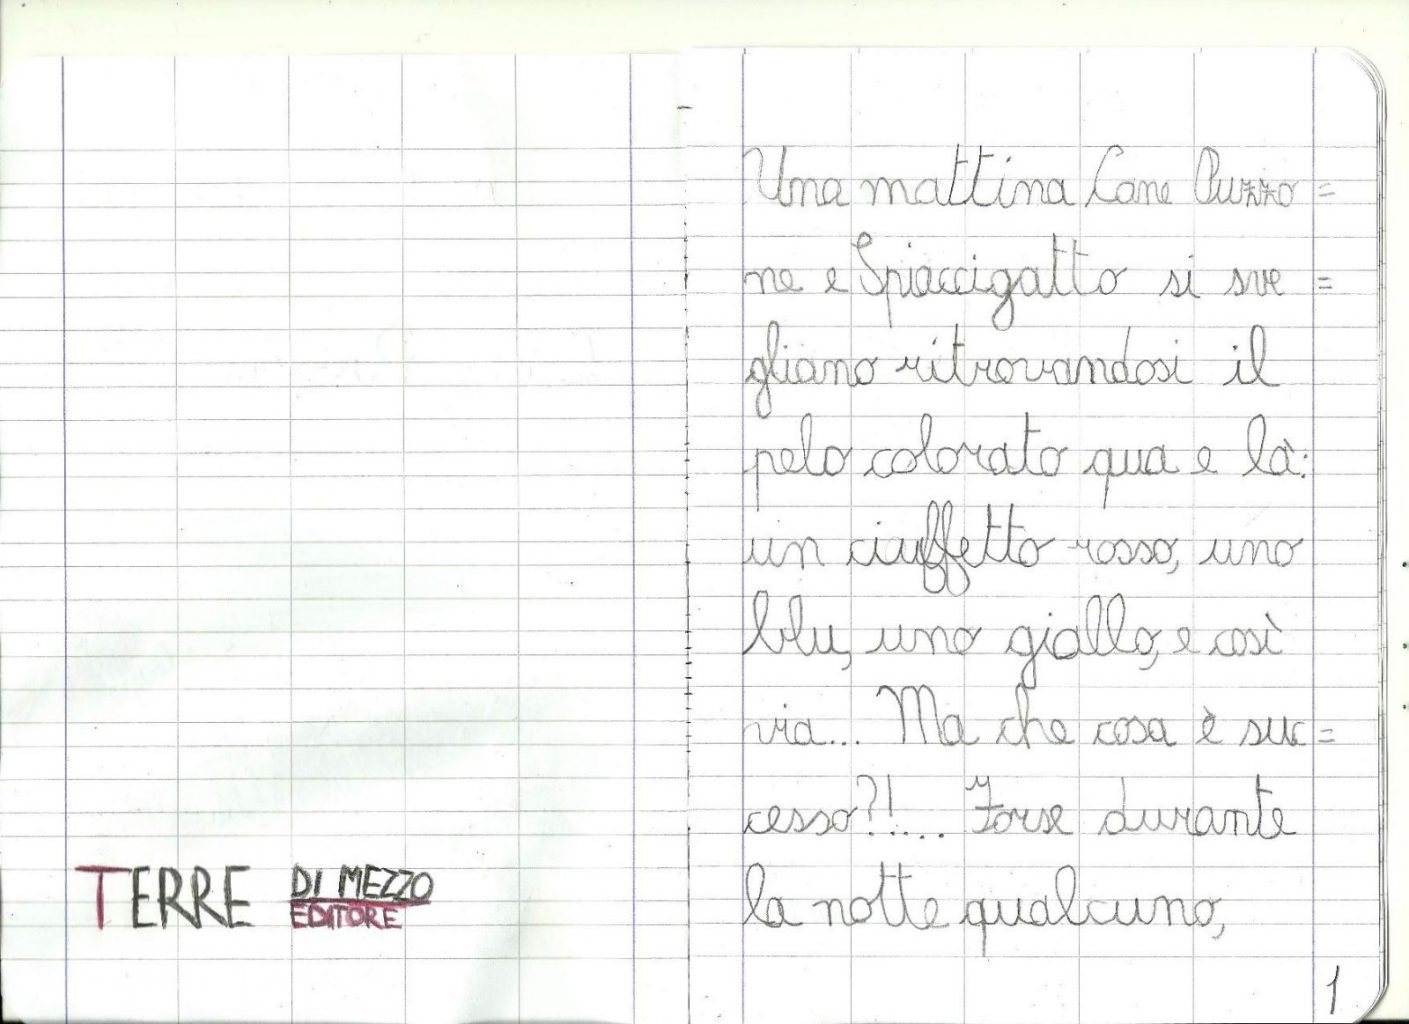 TERRE DI MEZZO
EDITORE
Una mattina Cane Puzzo=
ne e Spiaccigatto si sve=
gliano ritrovandosi il
pelo colorato qua e là:
un ciuffetto rosso, uno
blu, uno giallo, e così
via... Ma che cosa è suc=
cesso?!... Forse durante
la notte qualcuno,
1